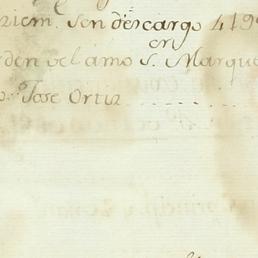 riem. Son descargo 419
en
rden del amo S. Marque
Jose Ortiz